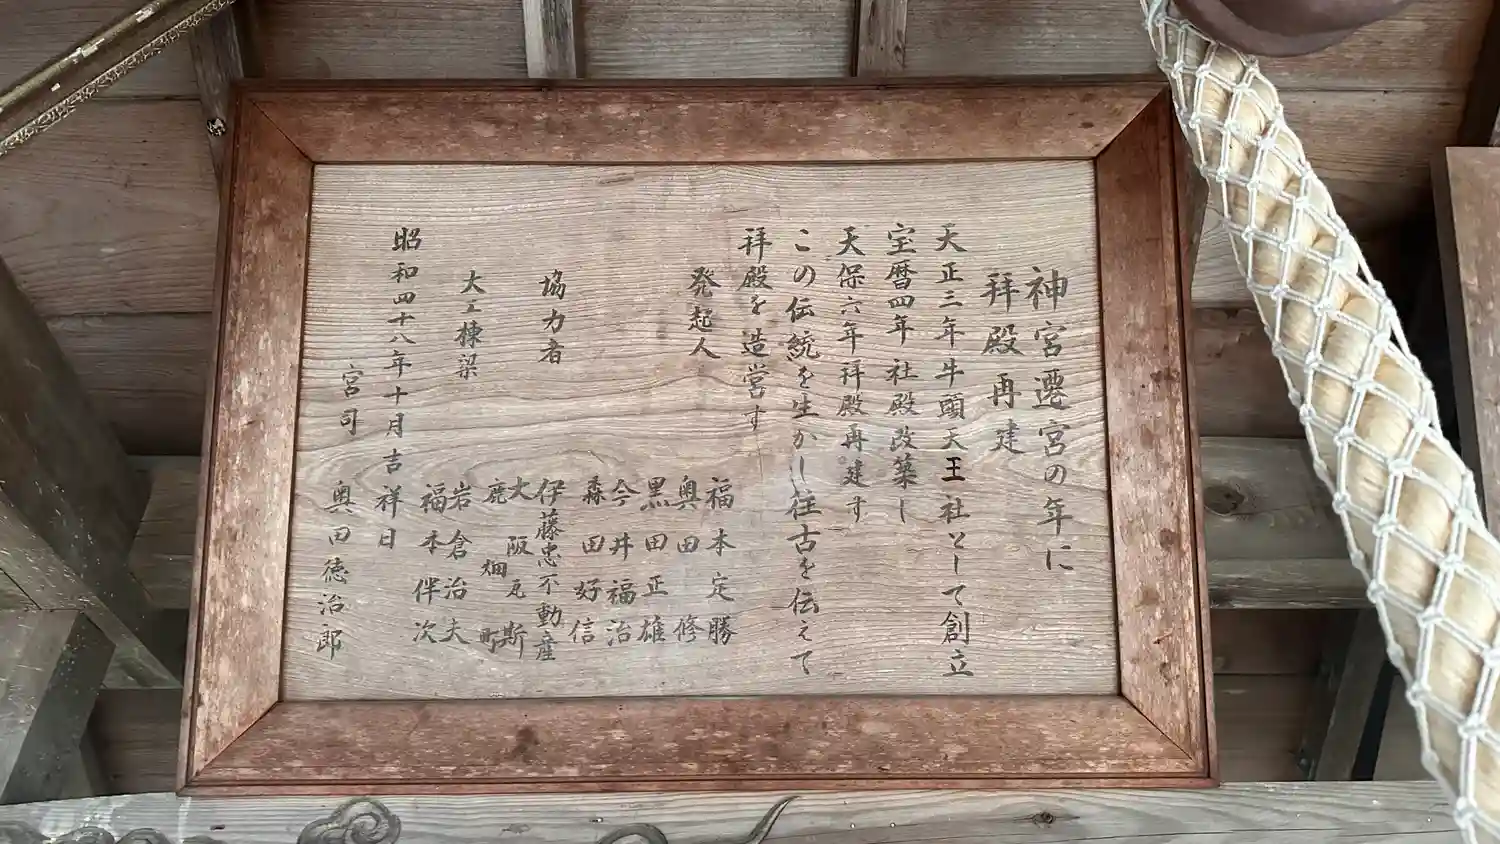 神宮遷宮の年に
拝殿再建
天正三年牛頭天王社として創立
宝暦四年社殿改築し
天保六年拝殿再建す
この伝統を生かし往古を伝えて
拝殿を造営す
発起人
福本定勝
奥田修
黒田正雄
今井福治
森田好信
協力者
伊藤忠不動産
大阪瓦斯
鹿畑町
大工棟梁
岩倉治夫
福本伴次
昭和四十八年十月吉祥日
宮司 奥田徳治郎